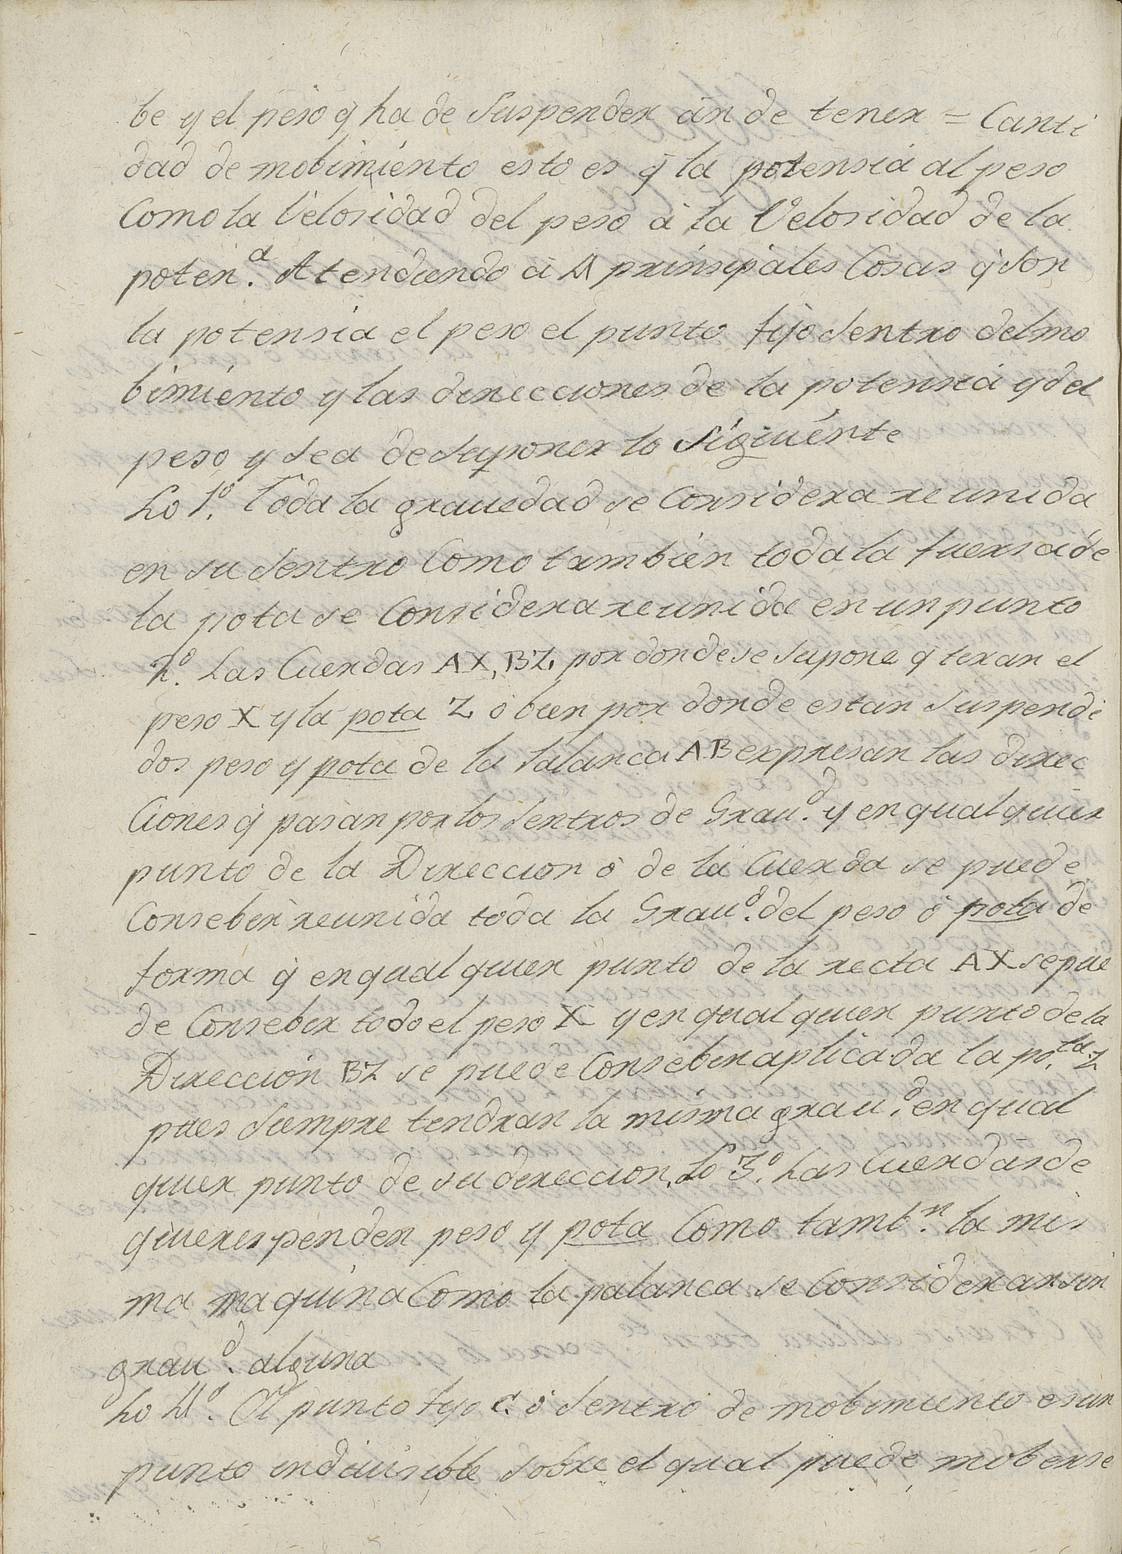 be y el peso q̃ ha de suspender an de tener = Canti
dad de mobimiento esto es q̃ la potensia al peso
Como la Velosidad del peso à la Velosidad de la
poten.ª Atendiendo à 4 prinsipales Cosas q̃ son
la potensia el peso el punto fijo sentro del mo
bimiento y las direcciones de la potensia y del
peso y sea de suponer lo siguiente
Lo 1.º Toda la grauedad se Considera reunida
en su sentro Como tambien toda la fuersa de
la pota se Considera reunida en un punto
2.º Las Cuerdas AX, BZ, por donde se supone q̃ tiran el
peso X y la pota Z o bien por donde estan suspendi
dos peso y pota de la palanca AB expresan las direc
Ciones q̃ pasan por los sentros de Grau.d y en qual quier
punto de la Direccion ò de la Cuerda se puede
Conseber reunida toda la Grau.d del peso ò pota de
forma q̃ en qual quier punto de la recta AX se pue
de Conseber todo el peso X y en qual quier punto de la
Direccion BZ se puede Conseber aplicada la po.ta Z
pues siempre tendran la misma grau.d en qual
quier punto de su direccion, Lo 3.º Las Cuerdas de
quienes penden peso y pota Como tamb.n la mis
ma maquina Como la palanca se Consideraran sin
grau.d alguna
Lo 4.º El punto fijo C. ò sentro de mobimiento es un
punto indiuisible sobre el qual puede moberse